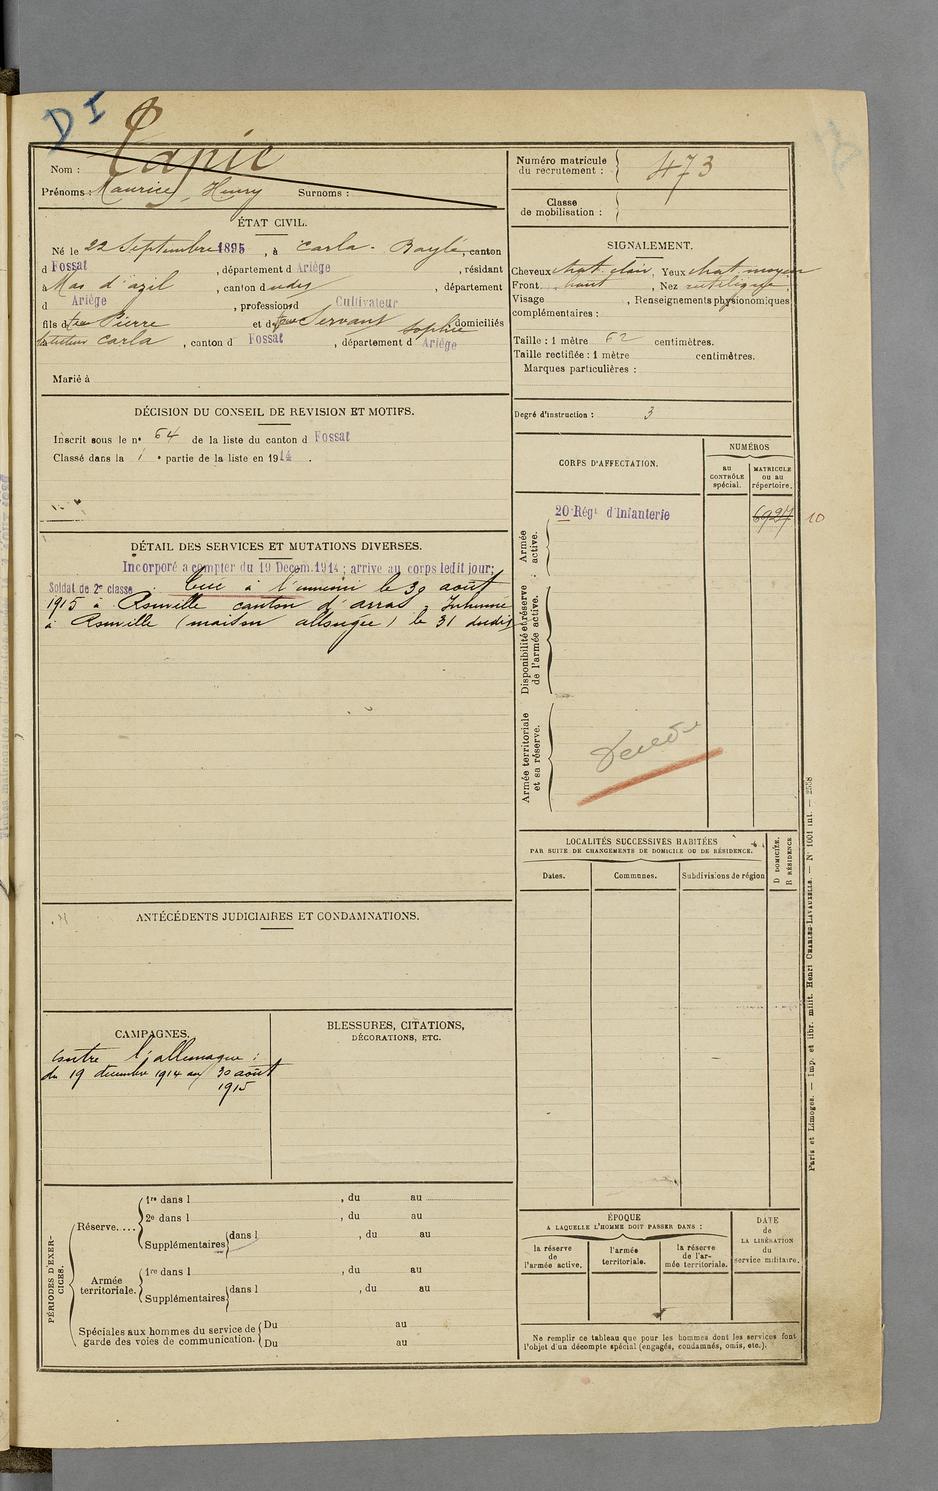 DI
Nom : Capic
Prénoms : Maurice, Henry Surnoms :
Numéro matricule
du recrutement : 473
Classe
de mobilisation :
ÉTAT CIVIL.
Né le 22 Septembre 1895, à Carla-Bayle, canton
d Fossat, département d Ariège, résidant
Mas d'azil, canton dudit, département
d Ariège, profession d Cultivateur
fils de feu Pierre et de feue Servant Sophie domiciliés
Carla, canton d Fossat, département d Ariège
Marié à
SIGNALEMENT.
Cheveux chat. clair, Yeux chat. moyen
Front haut, Nez rectiligne,
Visage , Renseignements physionomiques
complémentaires :
Taille : 1 mètre 62 centimètres.
Taille rectifiée : 1 mètre centimètres.
Marques particulières :
Degré d'instruction : 3
DÉCISION DU CONSEIL DE REVISION ET MOTIFS.
Inscrit sous le n° 64 de la liste du canton d Fossat
Classé dans la 1 e partie de la liste en 1914.
CORPS D'AFFECTATION.
NUMÉROS
AU
CONTRÔLE
spécial.
MATRICULE
ou au
répertoire.
Armée
active.
20 Régt d'Infanterie
6927
10
Disponibilité et réserve
de l'armée active.
Armée territoriale
et sa réserve.
DÉTAIL DES SERVICES ET MUTATIONS DIVERSES.
Incorporé à compter du 19 Décem. 1914 ; arrivé au corps ledit jour;
Soldat de 2e classe. Tué à l'ennemi le 30 août
1915 à Ronville canton d'arras, Inhumé
à Ronville (maison allongée) le 31 dudit
LOCALITÉS SUCCESSIVES HABITÉES
PAR SUITE DE CHANGEMENTS DE DOMICILE OU DE RÉSIDENCE.
D DOMICILE.
R RÉSIDENCE
Dates.
Communes.
Subdivisions de région
ANTÉCÉDENTS JUDICIAIRES ET CONDAMNATIONS.
CAMPAGNES.
Contre l'allemagne :
du 19 décembre 1914 au 30 août
1915
BLESSURES, CITATIONS,
DÉCORATIONS, ETC.
PÉRIODES D'EXER-
CICES.
Réserve....
1re dans l , du au
2e dans l , du au
Supplémentaires dans l , du au
Armée
territoriale.
1re dans l , du au
Supplémentaires dans l , du au
Spéciales aux hommes du service de
garde des voies de communication.
Du au
Du au
ÉPOQUE
A LAQUELLE L'HOMME DOIT PASSER DANS :
la réserve
de
l'armée active.
l'armée
territoriale.
la réserve
de l'ar-
mée territoriale.
DATE
de
LA LIBÉRATION
du
service militaire.
Ne remplir ce tableau que pour les hommes dont les services font
l'objet d'un décompte spécial (engagés, condamnés, omis, etc.).
Paris et Limoges. — Imp. et libr. milit. Henri CHARLES-LAVAUZELLE. — N° 1001 int. — 2558